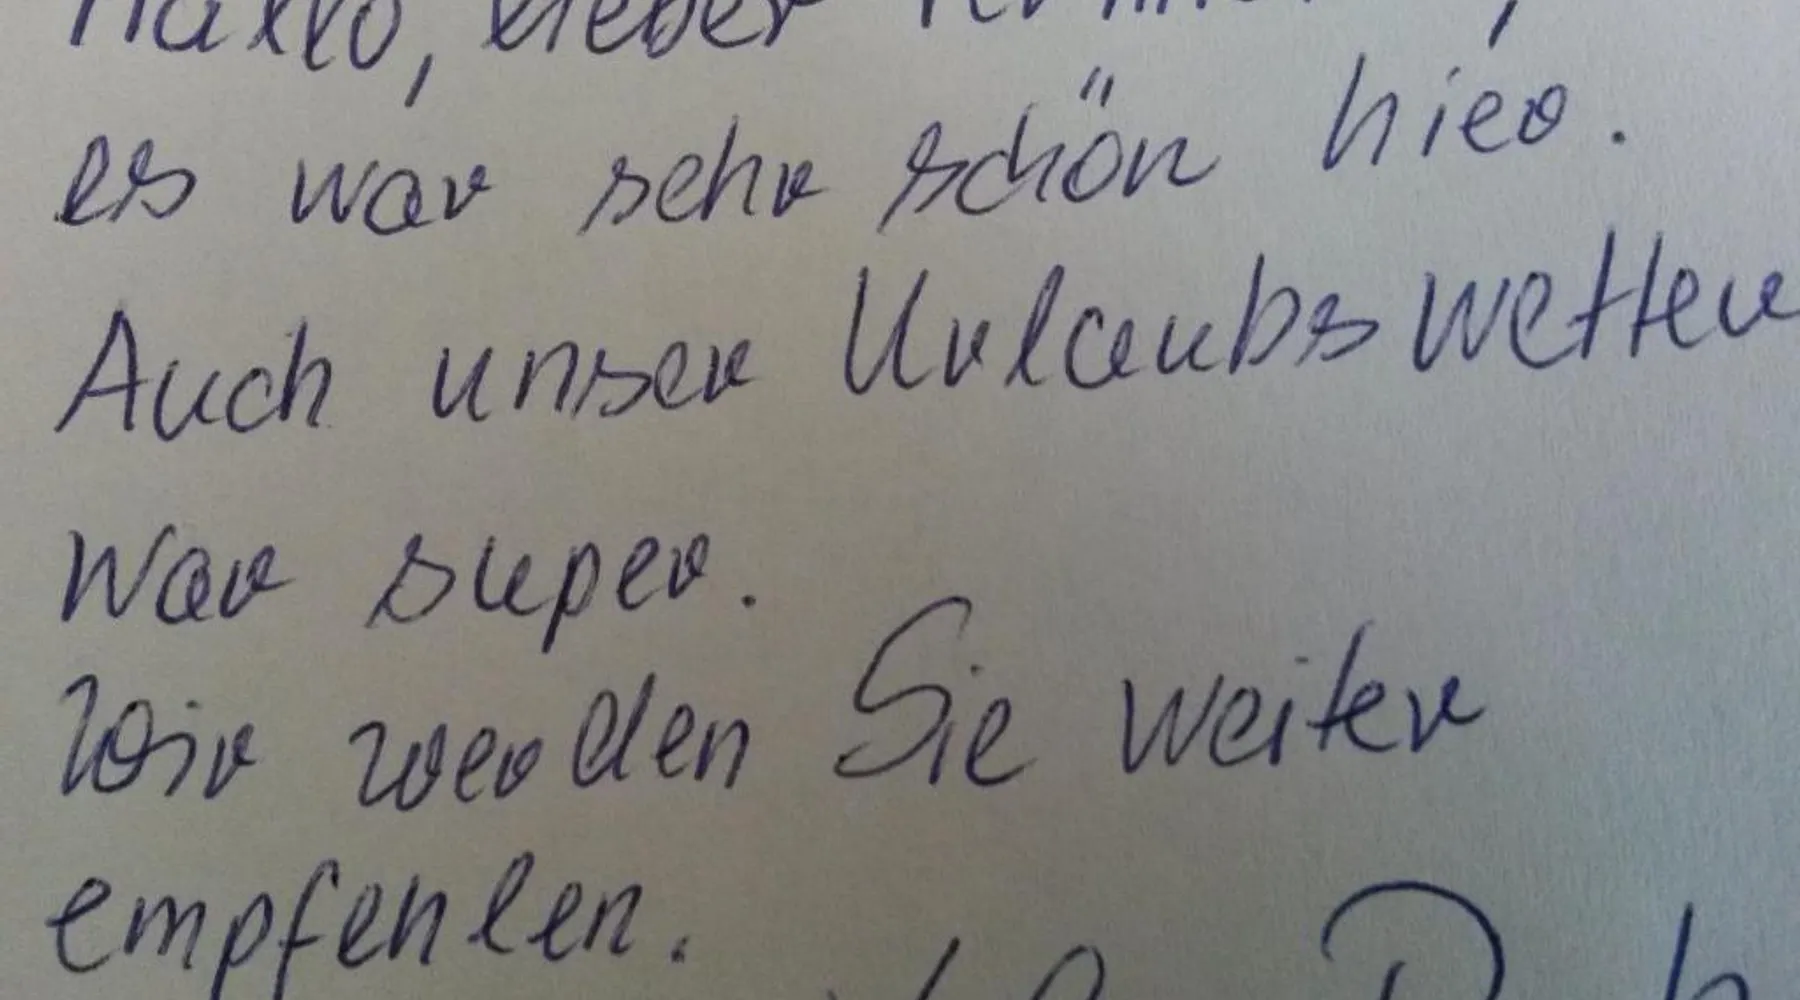 Hallo, lieber
es war sehr schön hier.
Auch unser Urlaubswetter
war super.
Wir werden Sie weiter
empfehlen.